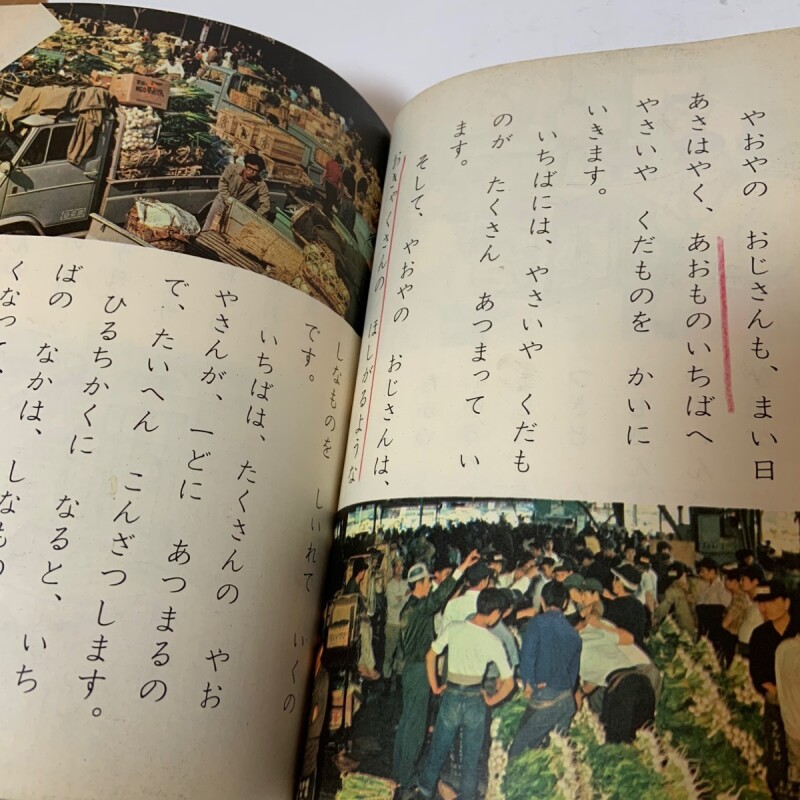 やおやの おじさんも、まい日
あさはやく、あおものいちばへ
やさいや くだものを かいに
いきます。
いちばには、やさいや くだも
のが たくさん あつまって い
ます。
そして、やおやの おじさんは、
おきゃくさんの ほしがるような
しなものを しいれて いくの
です。
いちばは、たくさんの やお
やさんが、一どに あつまるの
で、たいへん こんざつします。
ひるちかくに なると、いち
ばの なかは、しなもの
くなって、